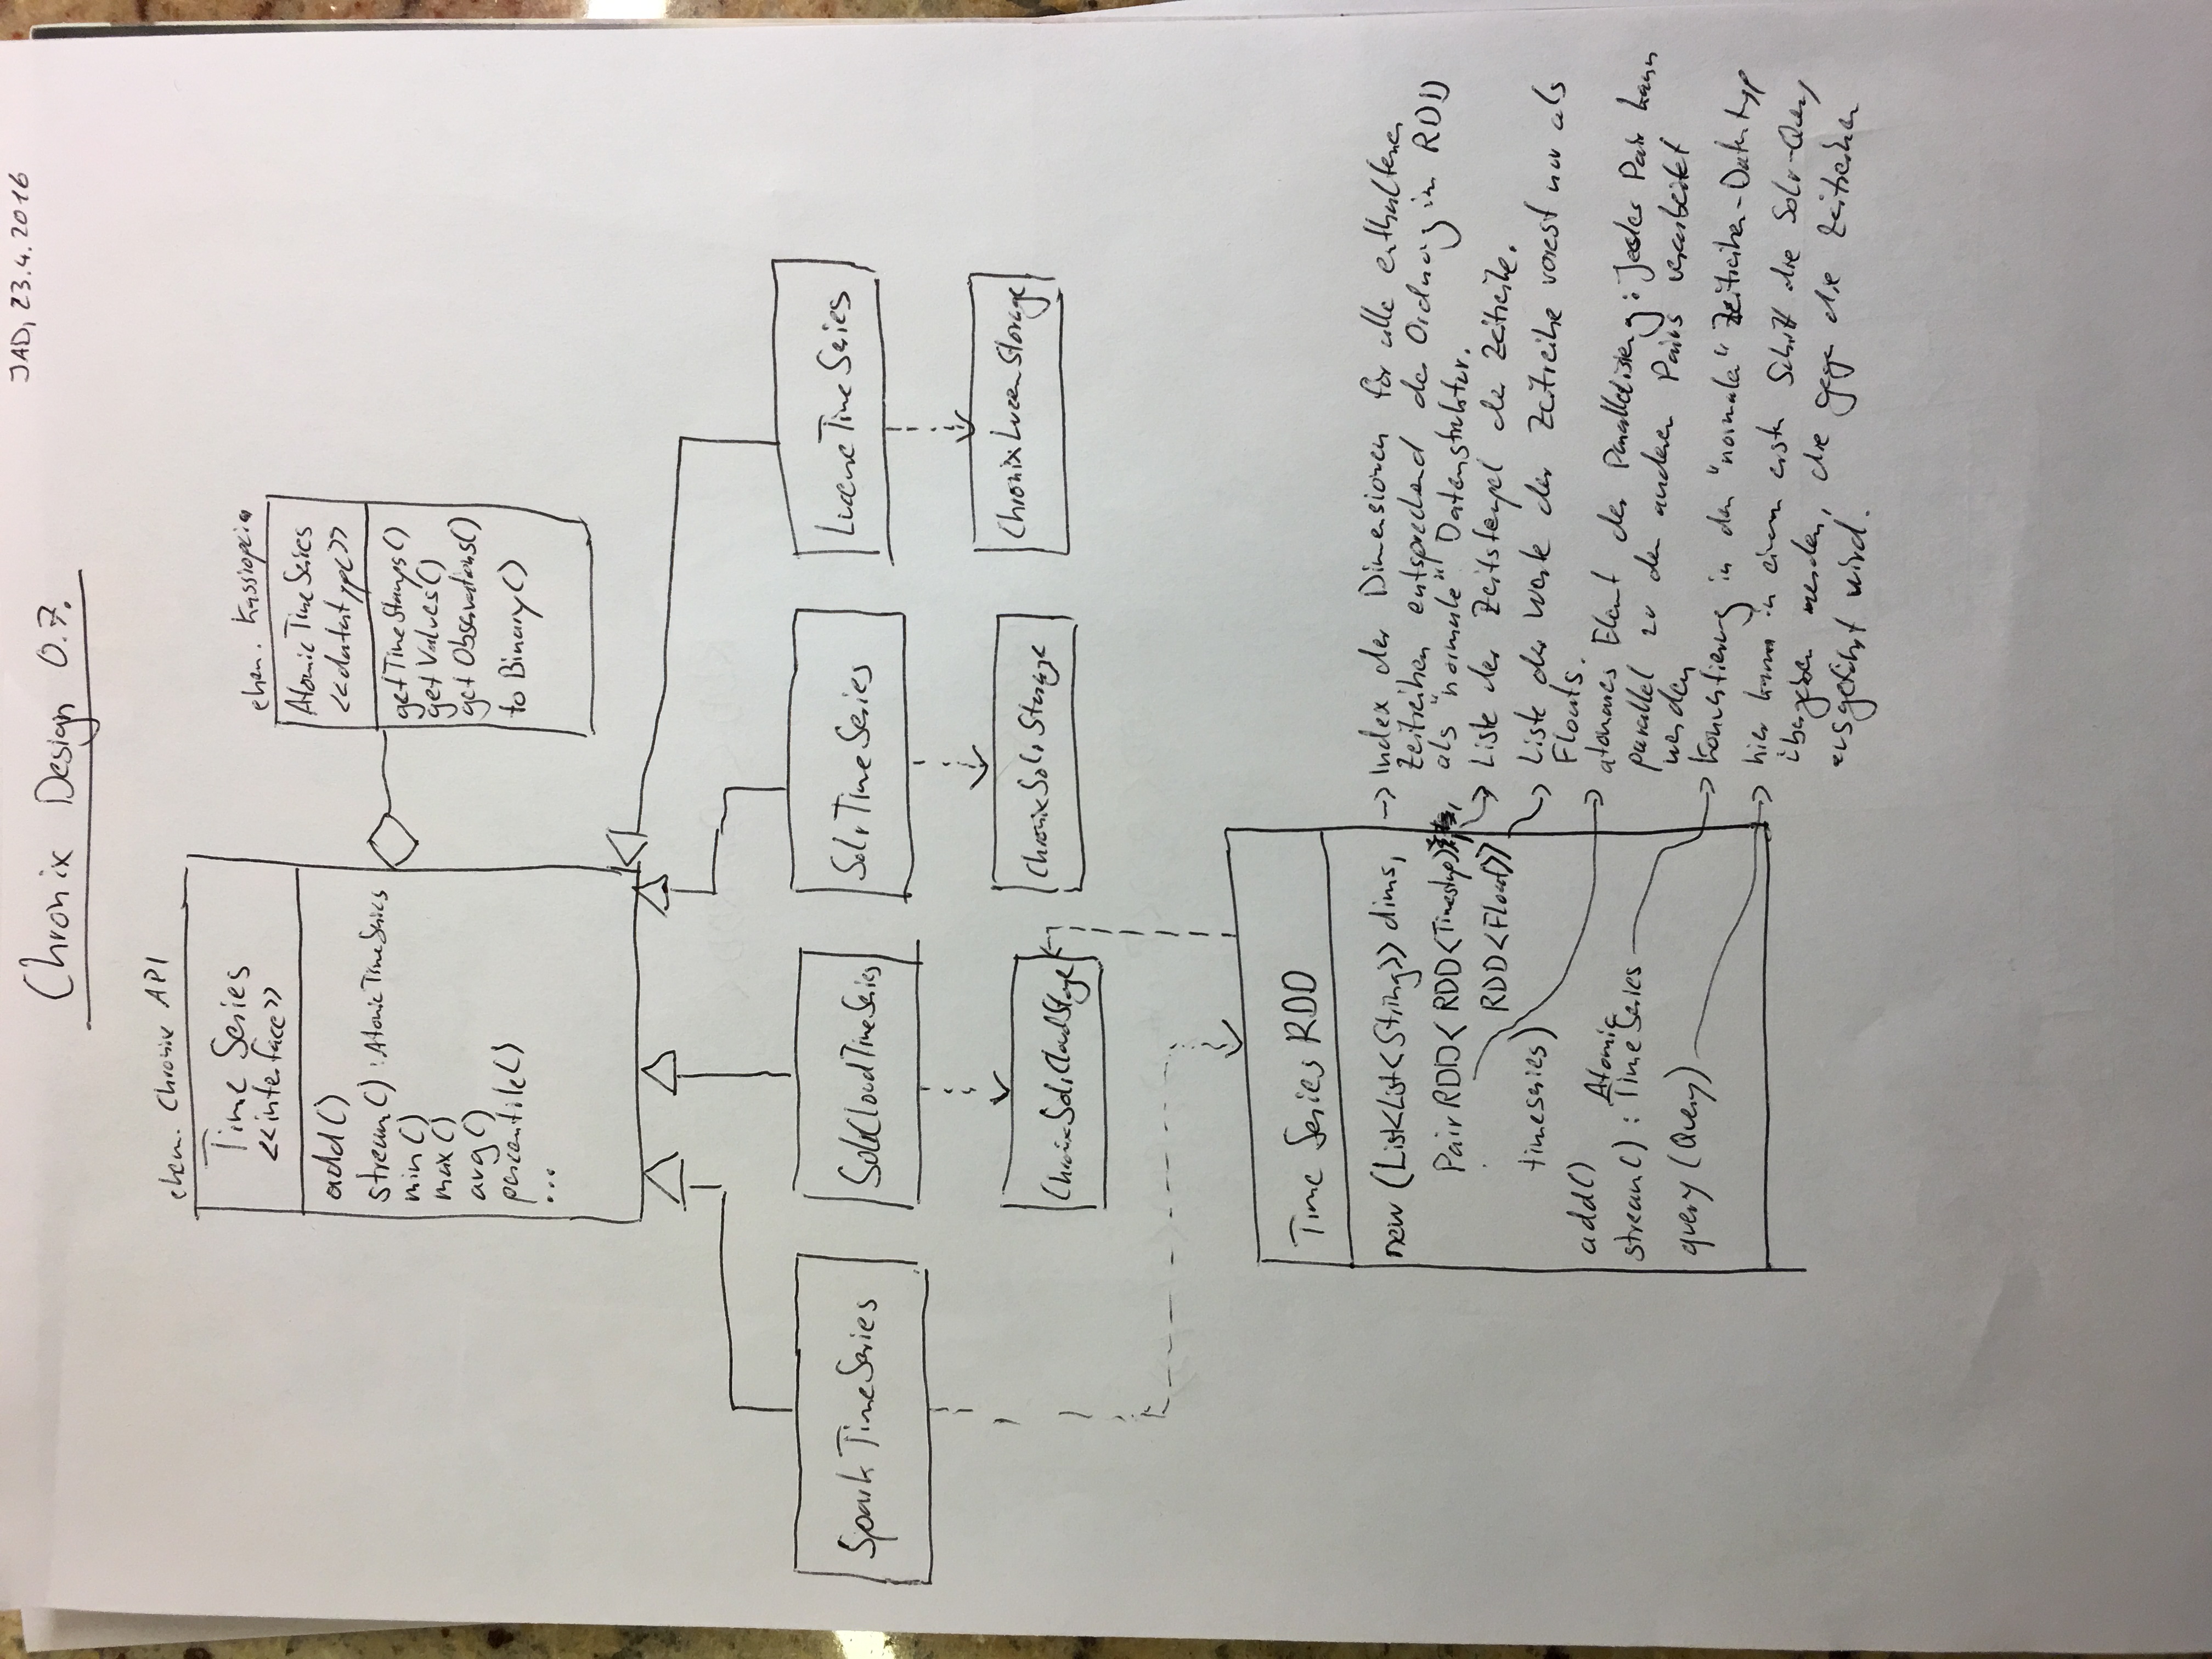 JAD, 23.4.2016
Chronix Design 0.7.
ehem. Chronix API
Time Series
<<interface>>
add()
stream() : AtomicTimeSeries
min()
max()
avg()
percentile()
...
ehem. Kassiopeia
AtomicTimeSeries
<<datatype>>
getTimeStamps()
getValues()
getObservations()
toBinary()
SparkTimeSeries
SolrCloudTimeSeries
SolrTimeSeries
LuceneTimeSeries
ChronixSolrCloudStorage
ChronixSolrStorage
ChronixLucenStorage
Time Series RDD
new (List<List<String>> dims,
PairRDD< RDD<Timestamp>,
RDD<Float>>
timeseries)
add()
stream() : Atomic
TimeSeries
query (Query)
Index der Dimensionen für alle enthaltenen
Zeitreihen entsprechend der Ordnung im RDD
als "normale" Datenstruktur.
Liste der Zeitstempel der Zeitreihe.
Liste der Werte der Zeitreihe vorest nur als
Floats.
atomares Element der Parallelisierung: Jedes Pair kann
parallel zu den anderen Pairs verarbeitet
werden
Konvertierung in den "normalen" Zeitreihen-Datentyp
hier kann in einem ersten Schritt die Solr-Query
übergeben werden, die gegen die Zeitreihen
ausgeführt wird.